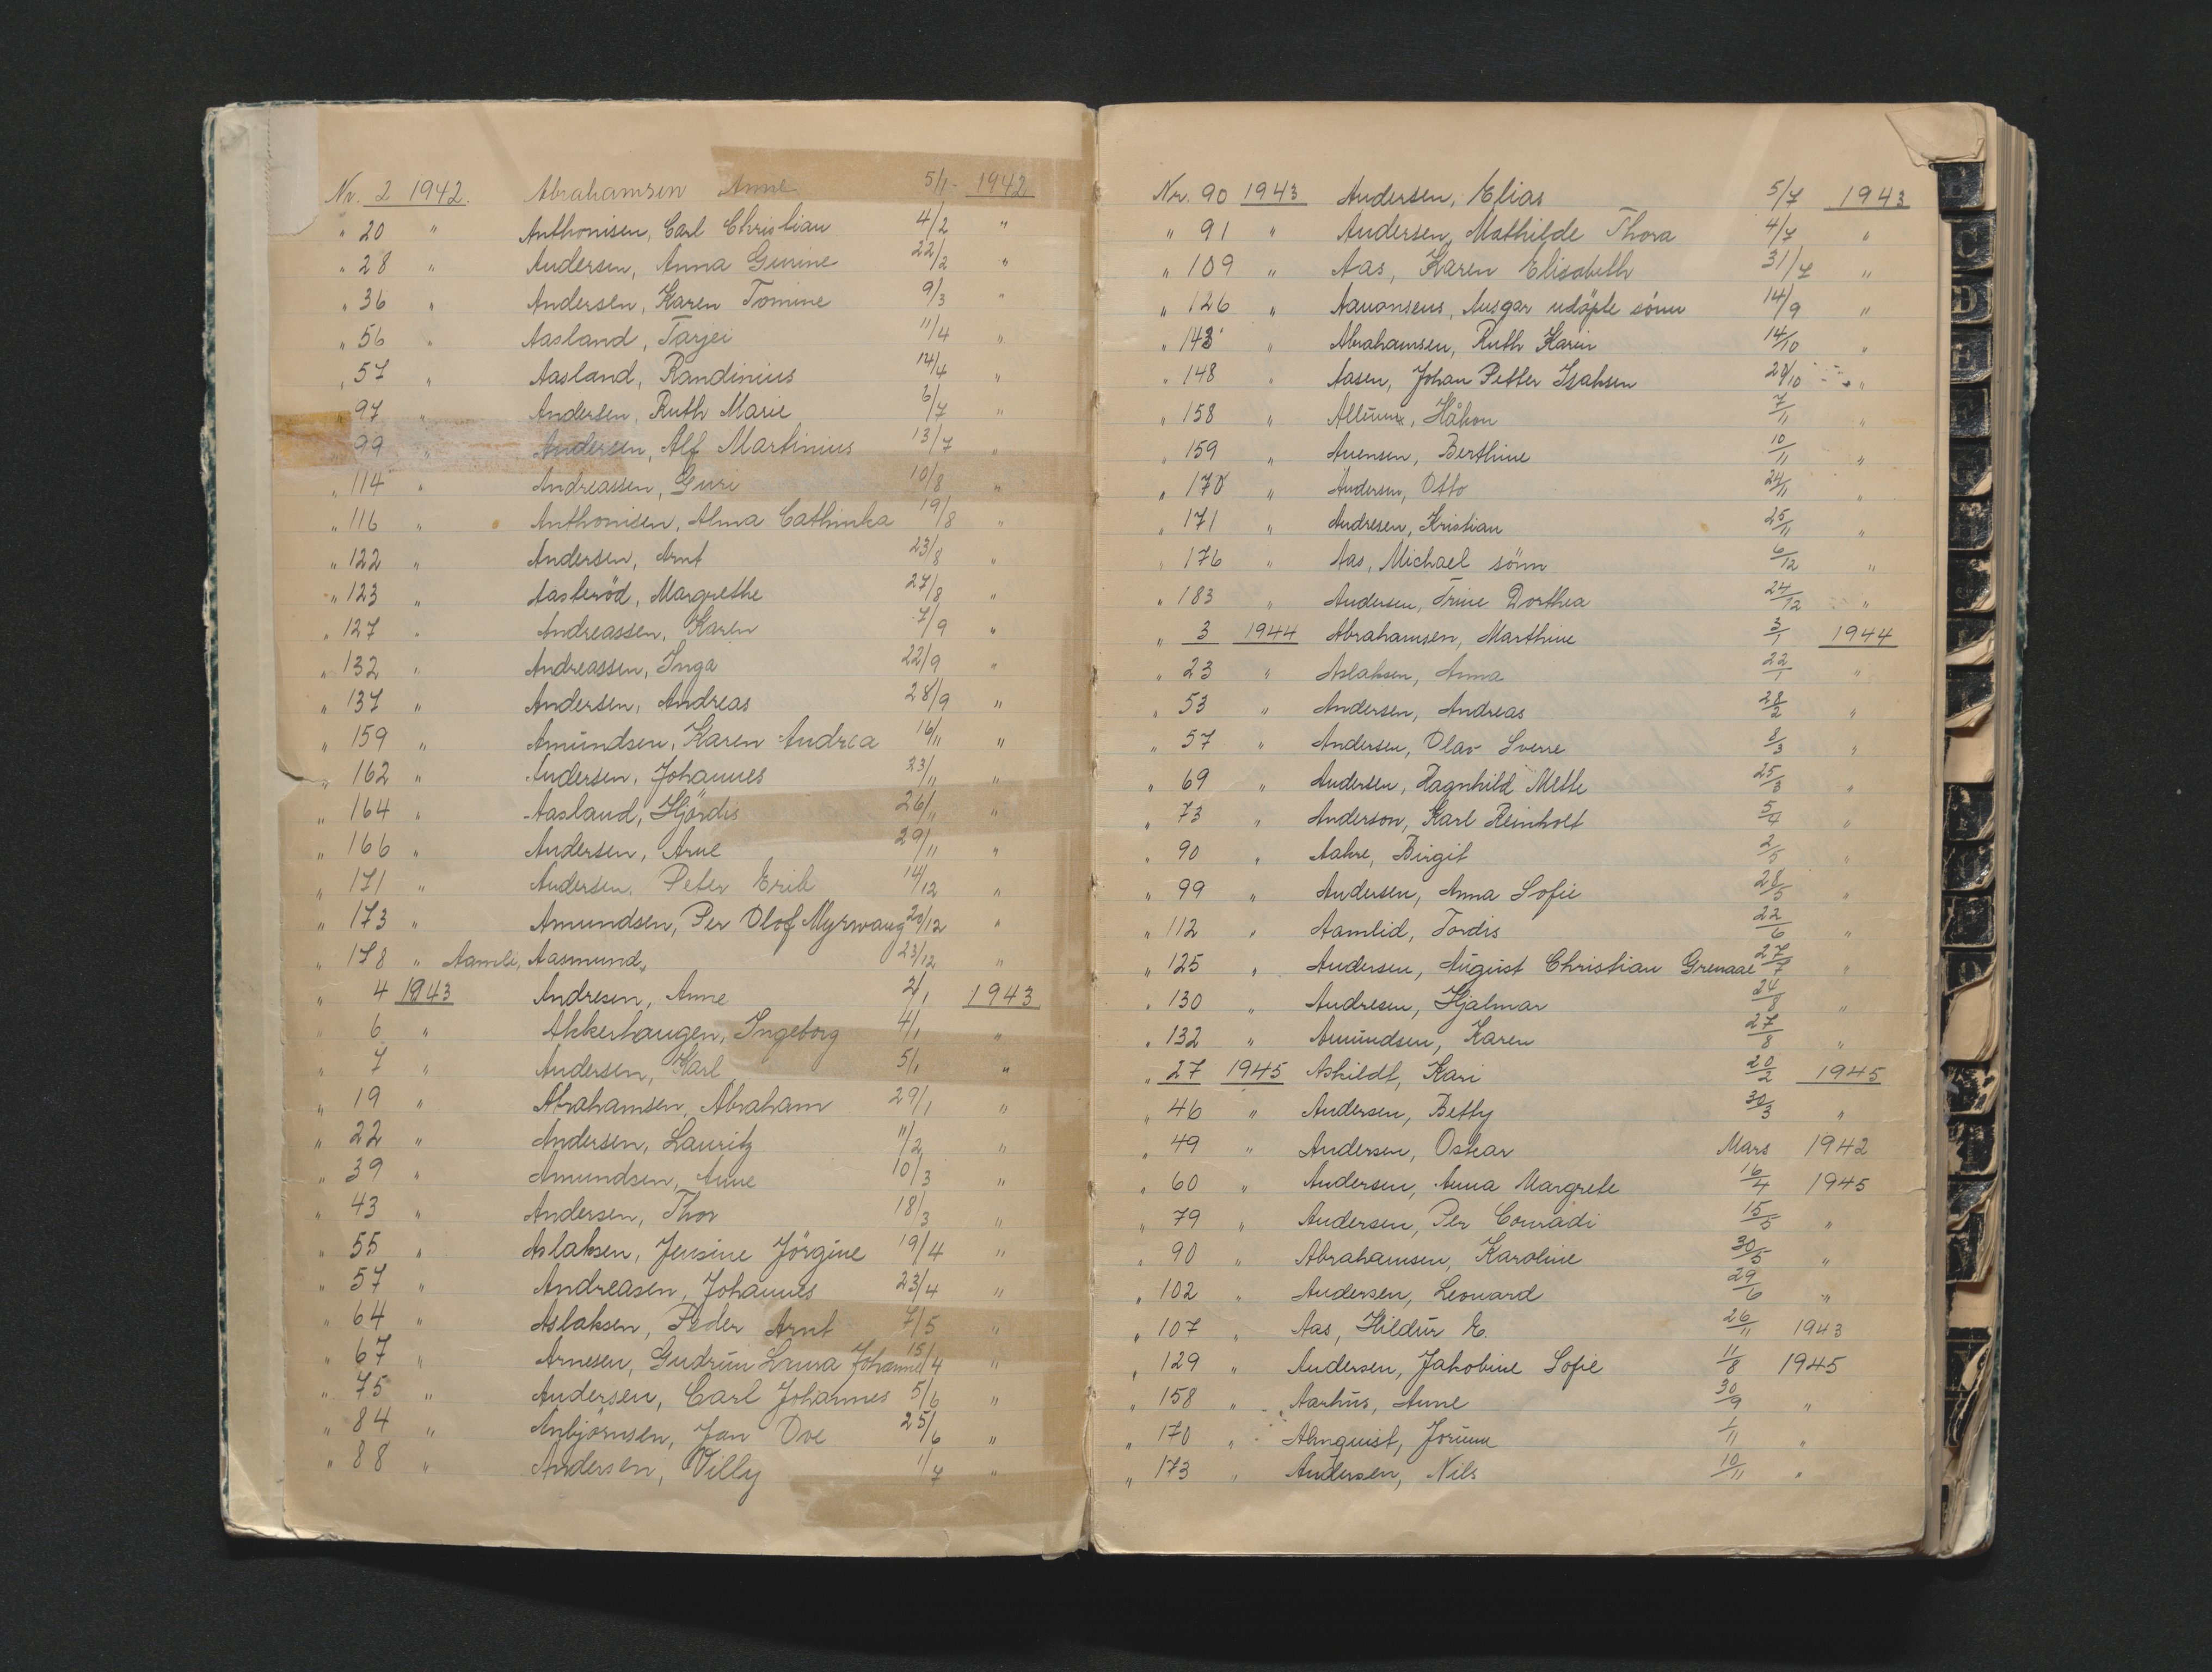 Nr. 2 1942. Abrahamsen Anne 5/1- 1942
" 20 " Anthonisen, Carl Christian 4/2 "
" 28 " Andersen, Anna Gurine 22/2 "
" 36 " Andersen, Karen Tomine 9/3 "
" 56 " Aasland, Tarjei 11/4 "
" 57 " Aasland, Randinius 14/4 "
" 97 " Andersen, Ruth Marie 6/7 "
" 99 " Andersen, Alf Martinius 13/7 "
" 114 " Andreassen, Guri 10/8 "
" 116 " Anthonisen, Alma Cathinka 19/8 "
" 122 " Andersen, Arnt 23/8 "
" 123 " Aasteröd, Margrethe 27/8 "
" 127 " Andreassen, Karen 7/9 "
" 132 " Andreassen, Inga 22/9 "
" 137 " Andersen, Andreas 28/9 "
" 159 " Amundsen, Karen Andrea 16/11 "
" 162 " Andersen, Johannes 23/11 "
" 164 " Aasland, Hjördis 26/11 "
" 166 " Andersen, Arne 29/11 "
" 171 " Andersen, Peter Erik 14/12 "
" 173 " Amundsen, Per Olof Myrwang 20/12 "
" 178 " Aamli, Aasmund, 23/12 "
" 4 1943 Andresen, Anne 2/1 1943
" 6 " Akkerhaugen, Ingeborg 4/1 "
" 7 " Andersen, Karl 5/1 "
" 19 " Abrahamsen, Abraham 29/1 "
" 22 " Andersen, Lauritz 11/2 "
" 39 " Amundsen, Anne 10/3 "
" 43 " Andersen, Thor 18/3 "
" 55 " Aslaksen, Jensine Jörgine 19/4 "
" 57 " Andreasen, Johannes 23/4 "
" 64 " Aslaksen, Peder Arnt 7/5 "
" 67 " Arnesen, Gudrun Laura Johanne 15/4 "
" 75 " Andersen, Carl Johannes 5/6 "
" 84 " Anbjørnsen, Jan Ove 25/6 "
" 88 " Andersen, Villy 1/7 "
Nr. 90 1943 Andersen, Elias 5/7 1943
" 91 " Andersen, Mathilde Thora 4/7 "
" 109 " Aas, Karen Elisabeth 31/7 "
" 126 " Ansgar udöpte sönn 14/9 "
" 143 " Abrahamsen, Ruth Karin 14/10 "
" 148 " Aasen, Johan Petter Isaksen 28/10 "
" 158 " Håkon 7/11 "
" 159 " Berthine 10/11 "
" 170 " Andersen, Otto 24/11 "
" 171 " Andresen, Kristian 25/11 "
" 176 " Aas, Michael sönn 6/12 "
" 183 " Andersen, Trine Dorthea 24/12 "
" 3 1944 Abrahamsen, Marthine 3/1 1944
" 23 " Aslaksen, Anna 22/1 "
" 53 " Andersen, Andreas 28/2 "
" 57 " Andersen, Olav Sverre 8/3 "
" 69 " Andersen, Ragnhild Mette 25/3 "
" 73 " Anderson, Karl Reinholt 5/4 "
" 90 " Aakre, Birgit 2/5 "
" 99 " Andersen, Anna Sofie 28/5 "
" 112 " Aamlid, Tordis 22/6 "
" 125 " Andersen, August Christian Grenaae 27/7 "
" 130 " Andresen, Hjalmar 24/8 "
" 132 " Amundsen, Karen 27/8 "
" 27 1945 Askildt, Kari 20/2 1945
" 46 " Andersen, Betty 30/3 "
" 49 " Andersen, Oskar Mars 1942
" 60 " Andersen, Anna Margrete 16/4 1945
" 79 " Andersen, Per Conradi 15/5 "
" 90 " Abrahamsen, Karoline 30/5 "
" 102 " Andersen, Leonard 29/6 "
" 107 " Aas, Hildur E. 26/11 1943
" 129 " Andersen, Jakobine Sofie 11/8 1945
" 158 " Aarhus, Anne 30/9 "
" 170 " Almquist, Jorunn 1/11 "
" 173 " Andersen, Nils 10/11 "
B
C
D